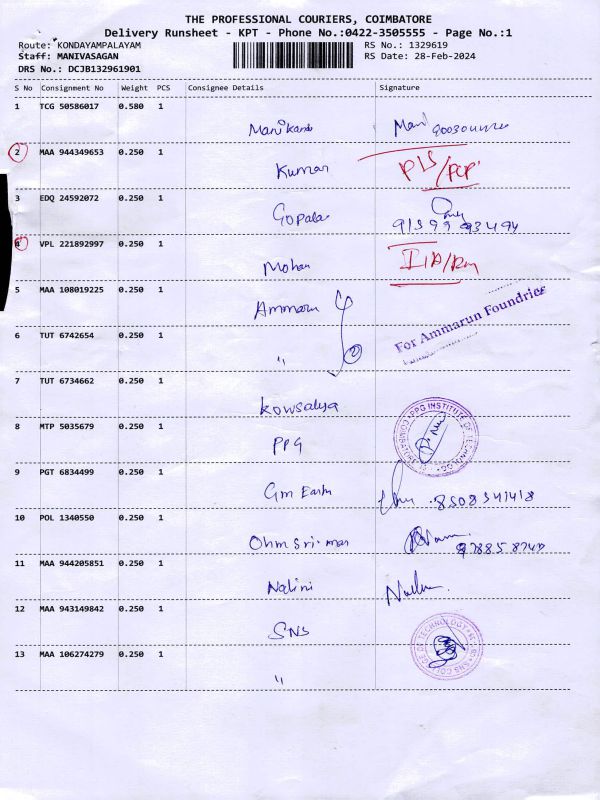 THE PROFESSIONAL COURIERS, COIMBATORE
Delivery Runsheet - KPT - Phone No.:0422-3505555 - Page No.:1
Route: KONDAYAMPALAYAM RS No.: 1329619
Staff: MANIVASAGAN RS Date: 28-Feb-2024
DRS No.: DCJB132961901
S No Consignment No Weight PCS Consignee Details Signature
1 TCG 50586017 0.580 1
Manikand Mani
2 MAA 944349653 0.250 1
Kumar PIS/PCP
3 EDQ 24592072 0.250 1
Gopala
4 VPL 221892997 0.250 1
Mohan
5 MAA 108019225 0.250 1
Ammarun For Ammarun Foundries
6 TUT 6742654 0.250 1
"
7 TUT 6734662 0.250 1
Kowsalya
8 MTP 5035679 0.250 1
PPG PPG INSTITUTE OF TECHNOLOGY
9 PGT 6834499 0.250 1
Gm Earth 8508341418
10 POL 1340550 0.250 1
Ohm Sri man
11 MAA 944205851 0.250 1
Nalini
12 MAA 943149842 0.250 1
SNS SNS COLLEGE OF TECHNOLOGY
13 MAA 106274279 0.250 1
"